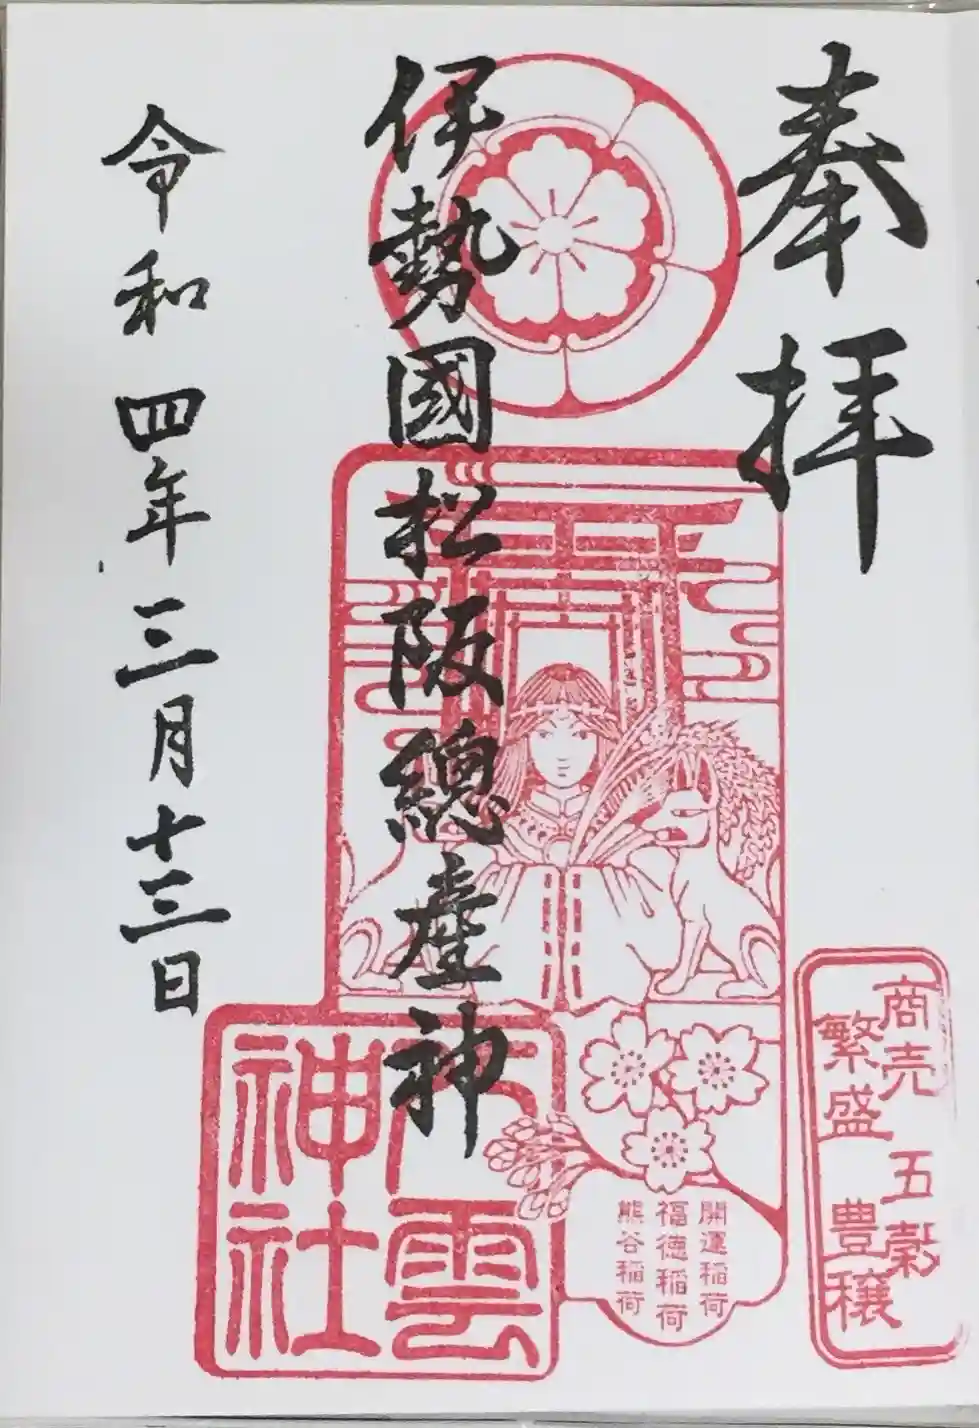 奉拝
商売
繁盛
五穀
豊穣
伊勢國松阪總産神
開運稲荷
福徳稲荷
熊谷稲荷
八雲
神社
令和四年三月十三日